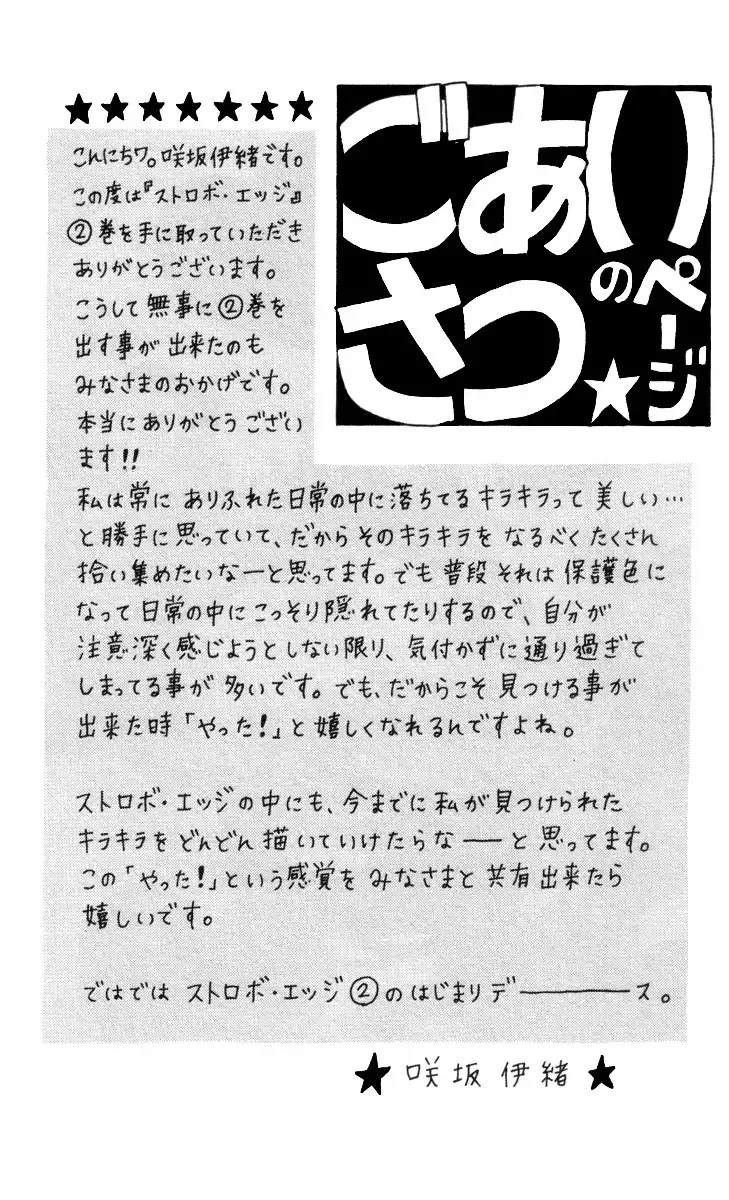 ごあいさつのページ
こんにちワ。咲坂伊緒です。
この度は『ストロボ・エッジ』
②巻を手に取っていただき
ありがとうございます。
こうして無事に②巻を
出す事が出来たのも
みなさまのおかげです。
本当にありがとうござい
ます!!
私は常にありふれた日常の中に落ちてるキラキラって美しい…
と勝手に思っていて、だからそのキラキラをなるべくたくさん
拾い集めたいなーと思ってます。でも普段それは保護色に
なって日常の中にこっそり隠れてたりするので、自分が
注意深く感じようとしない限り、気付かずに通り過ぎて
しまってる事が多いです。でも、だからこそ見つける事が
出来た時「やった!」と嬉しくなれるんですよね。
ストロボ・エッジの中にも、今までに私が見つけられた
キラキラをどんどん描いていけたらな――と思ってます。
この「やった!」という感覚をみなさまと共有出来たら
嬉しいです。
ではではストロボ・エッジ②のはじまりデ――――ス。
★咲坂伊緒★